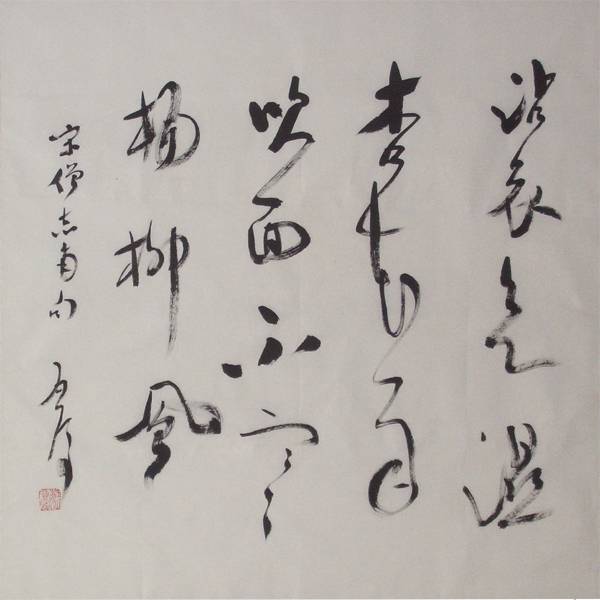 沾衣欲湿
杏花雨
吹面不寒
楊柳風
宋僧志南句